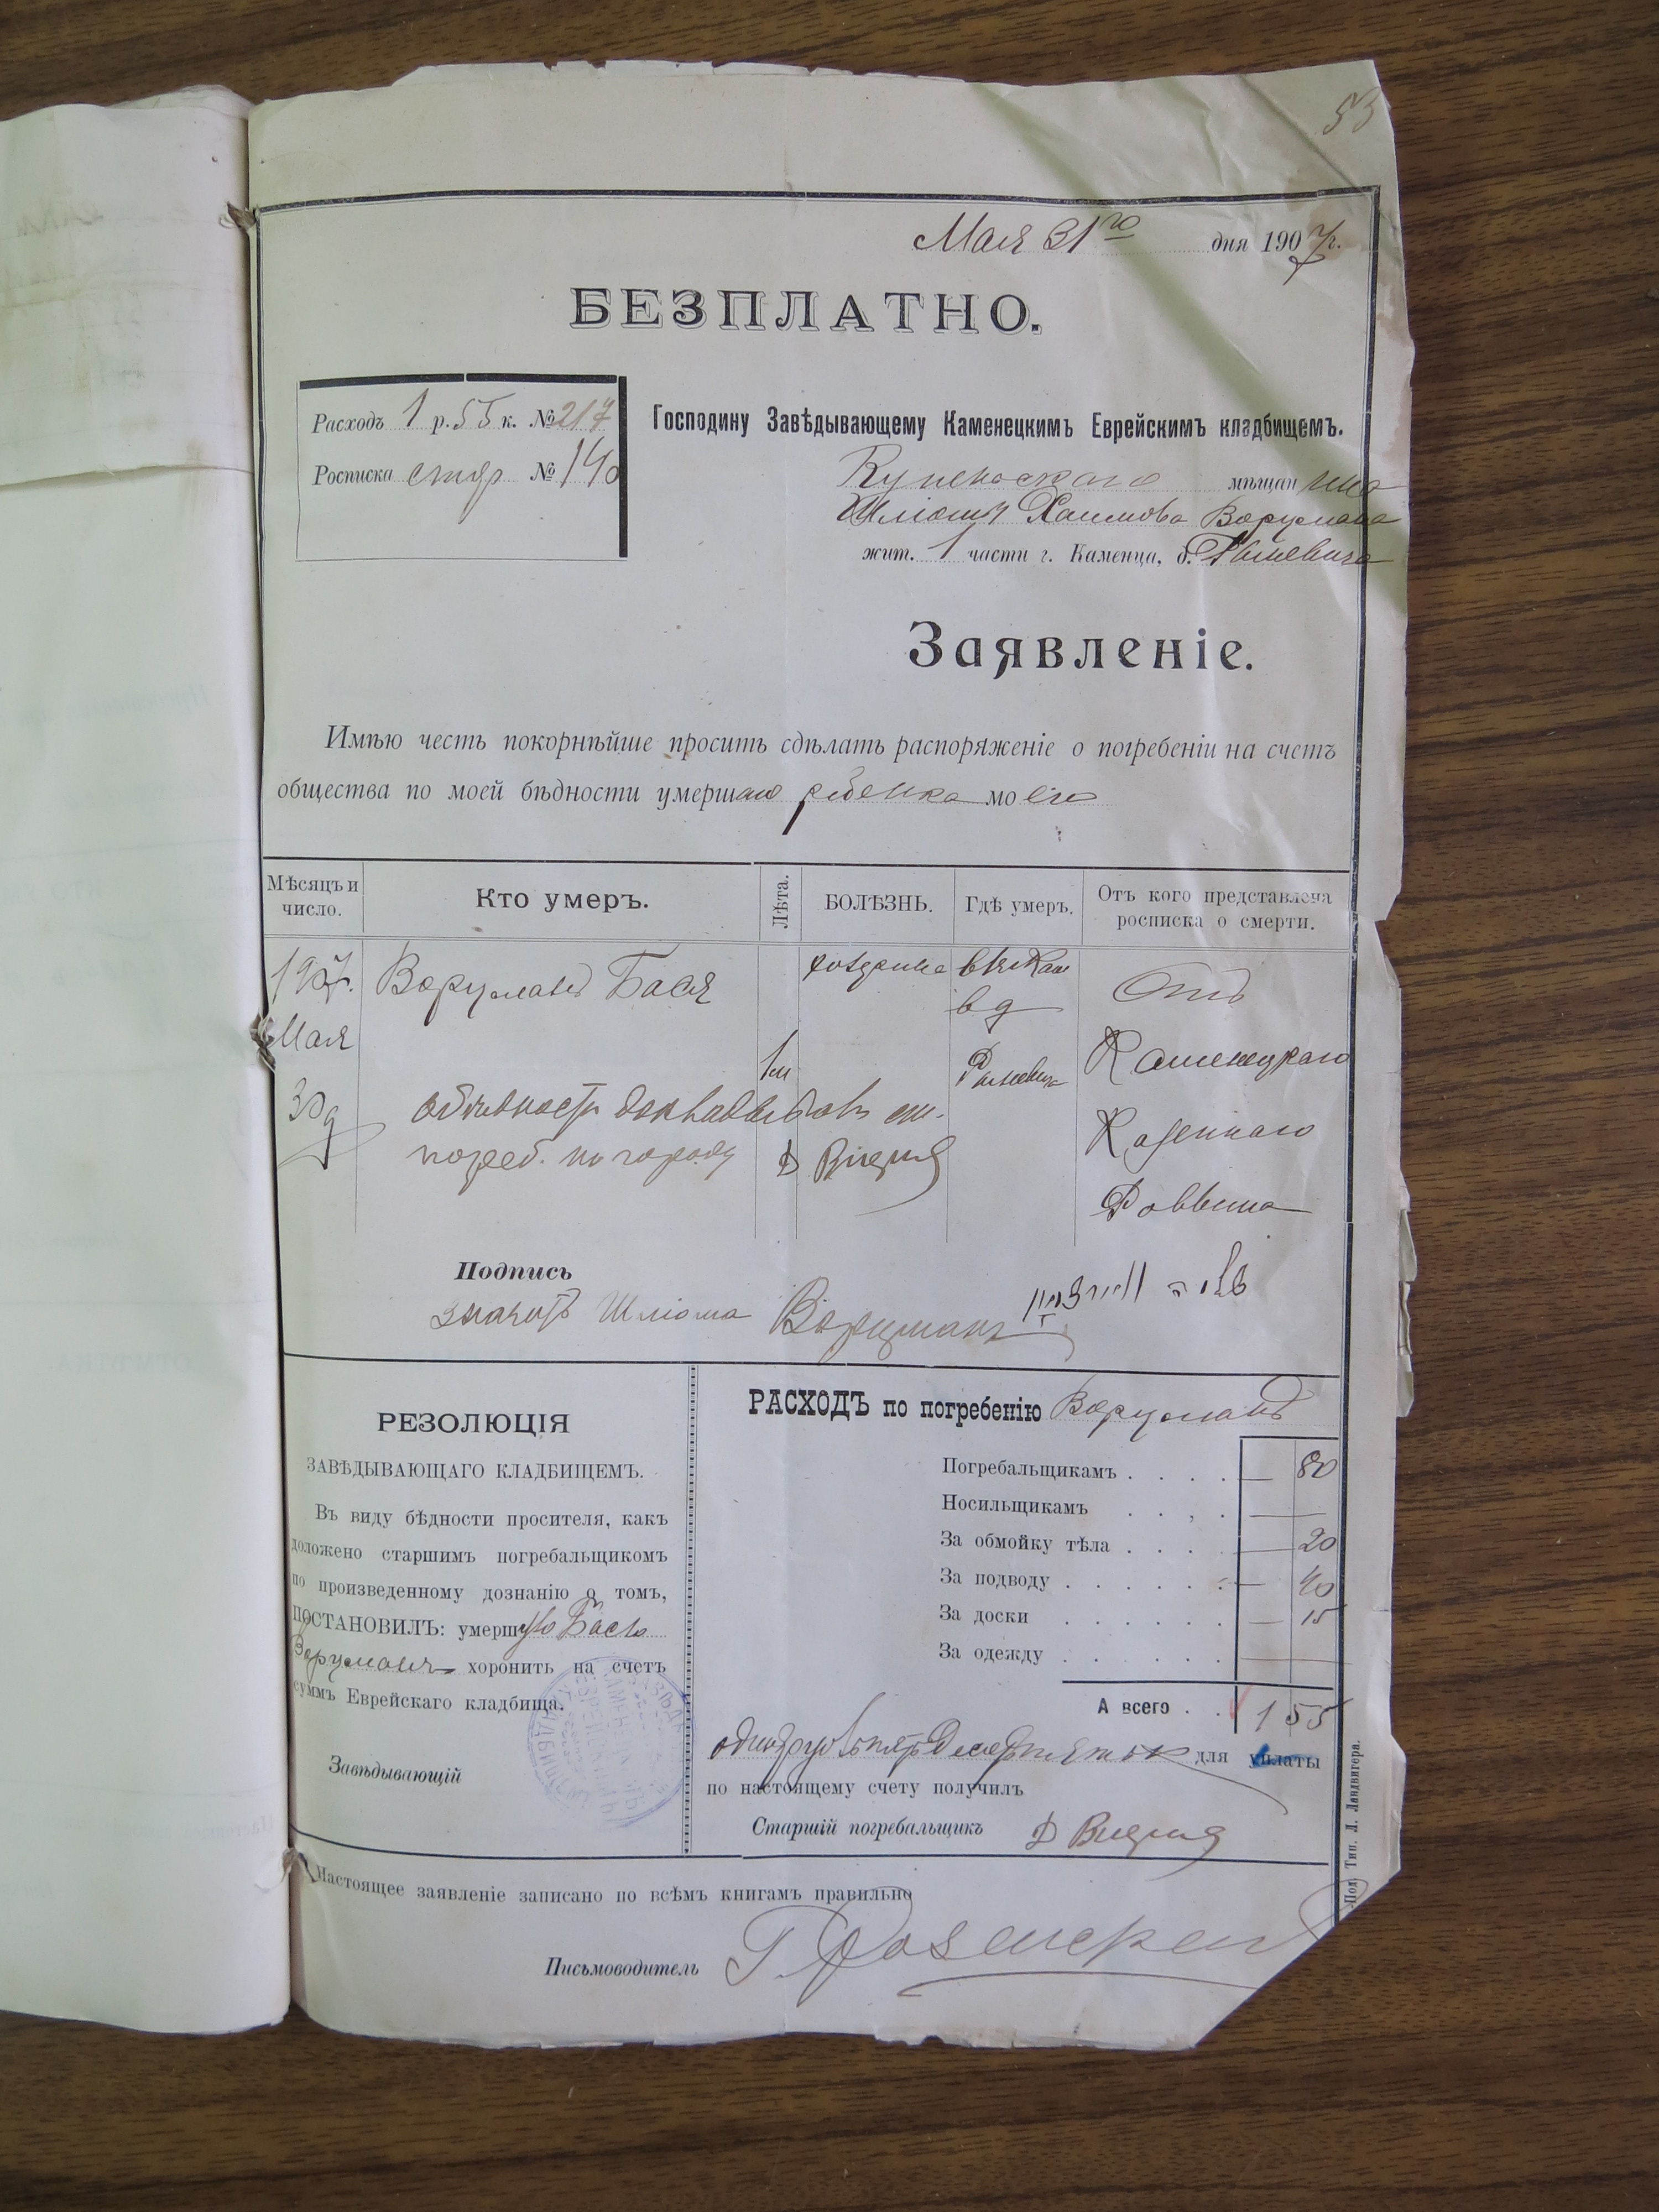 53
Мая 31го дня 1907 г.
БЕЗПЛАТНО.
Расходъ 1 р. 55 к. № 217
Росписка № 140
Господину Завѣдывающему Каменецкимъ Еврейскимъ кладбищемъ.
мѣщанина
Шліомы Хаимова Ворцмана
жит. 1 части г. Каменца, д.
Заявленіе.
Имѣю честь покорнѣйше просить сдѣлать распоряженіе о погребеніи на счетъ
общества по моей бѣдности умершаго ребенка моего
Мѣсяцъ и число.
Кто умеръ.
Лѣта.
БОЛѢЗНЬ.
Гдѣ умеръ.
Отъ кого представлена росписка о смерти.
1907.
Мая
30 д
Ворцманъ Бася
1 м
в д
Отъ
Каменецкаго
Казеннаго
Раввина
погреб. по городу
Подпись
Шліома Ворцманъ
РЕЗОЛЮЦІЯ
ЗАВѢДЫВАЮЩАГО КЛАДБИЩЕМЪ.
Въ виду бѣдности просителя, какъ
доложено старшимъ погребальщикомъ
по произведенному дознанію о томъ,
ПОСТАНОВИЛЪ: умершую Басю
Ворцманъ хоронить на счетъ
суммъ Еврейскаго кладбища.
Завѣдывающій
РАСХОДЪ по погребенію Ворцманъ
Погребальщикамъ . . . . — 80
Носильщикамъ . . , . —
За обмойку тѣла . . . — 20
За подводу . . . . . . — 40
За доски . . . . . . — 15
За одежду . . . . . . —
А всего . . 1 55
для уплаты
по настоящему счету получилъ
Старшій погребальщикъ
Настоящее заявленіе записано по всѣмъ книгамъ правильно
Письмоводитель
Под. Тип. Л. Ландвигера.